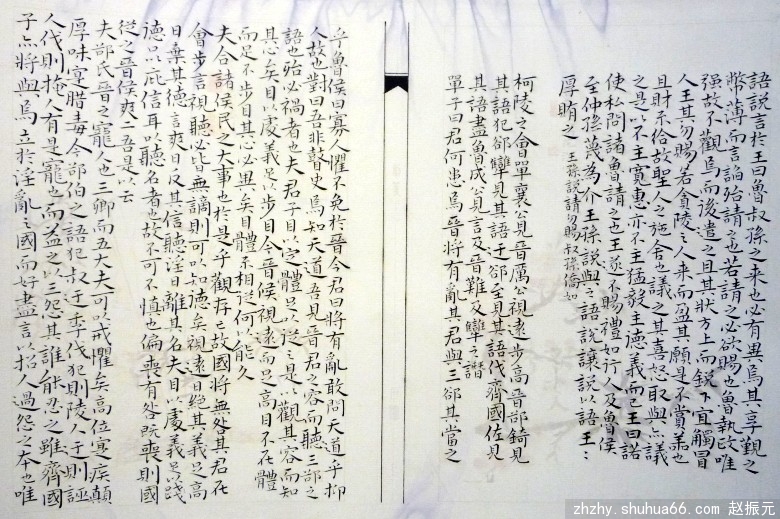 語說言於王曰魯叔孫之來也必有異焉其享覲之
幣薄而言諂殆請之也若請之必欲賜也魯執政唯
强故不觀焉而後遣之且其狀方上而銳下宜觸冒
人王其勿賜若貪陵之人來而盈其願是不賞善也
且財不給故聖人之施舍也議之其喜怒取與亦議
之是以不主寬惠亦不主猛毅主德義而已王曰諾
使私問諸魯請之也王遂不賜禮如行人及魯侯
至仲孫蔑為介王孫說與之語說讓說以語王:
厚賄之 王孫說請勿賜叔孫僑如
柯陵之會單襄公見晉厲公視遠步高晉郤錡見
其語犯郤犨見其語迂郤至見其語伐齊國佐見
其語盡魯成公見言及晉難及犨之譖
單子曰君何患焉晉將有亂其君與三郤其當之
乎魯侯曰寡人懼不免於晉今君曰將有亂敢問天道乎抑
人故也對曰吾非瞽史焉知天道吾見晉君之容而聽三郤之
語也殆必禍者也夫君子目以定體足以從之是以觀其容而知
其心矣目以處義足以步目今晉侯視遠而足高目不在體
而足不步目其心必異矣目體不相從何以能久
夫合諸侯民之大事也於是乎觀存亡故國將無咎其君在
會步言視聽必皆無謫則可以知德矣視遠日絕其義足高
日棄其德言爽日反其信聽淫日離其名夫目以處義足以踐
德口以庇信耳以聽名者也故不可不慎也偏喪有咎既喪則國
從之晉侯爽二吾是以云
夫郤氏晉之寵人也三卿而五大夫可以戒懼矣高位寔疾顛
厚味寔腊毒今郤伯之語犯叔迂季伐犯則陵人迂則誣
人伐則掩人有是寵也而益之以三怨其誰能忍之雖齊國
子亦將與焉立於淫亂之國而好盡言以招人過怨之本也唯
zhzhy.shuhua66.com 赵振元